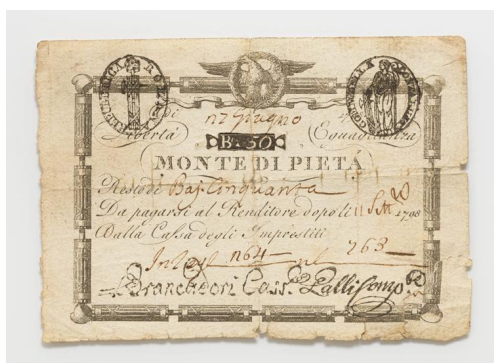 REPUBBLICA ROMANA
Libertà
Giugno
Eguaglianza
B. 50
MONTE DI PIETÀ
Resto di Baj. Cinquanta
Da pagarsi al Renditore dopo li 11 Sett. 1798
Dalla Cassa degli Imprestiti
n 64 nel 263
Brancadori Cass. Galli Comp